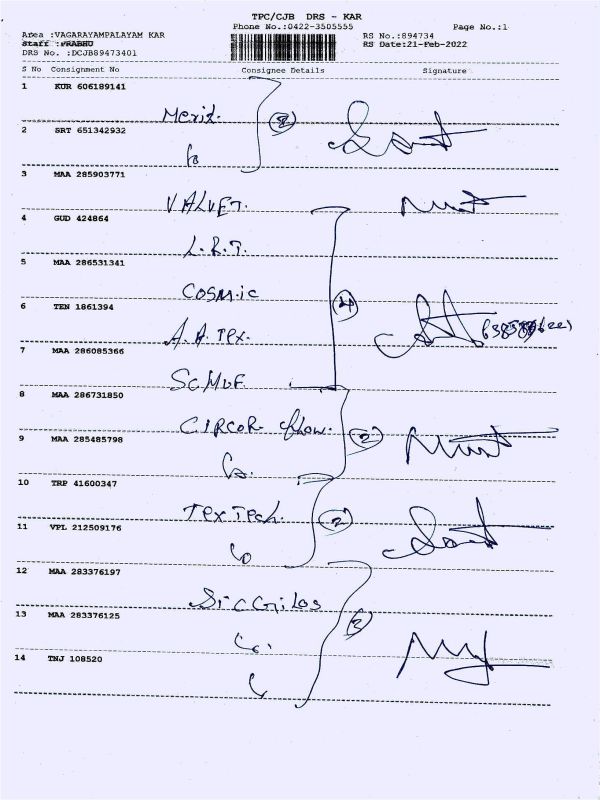 TPC/CJB DRS - KAR
Phone No.:0422-3505555 Page No.:1
Area :VAGARAYAMPALAYAM KAR RS No.:894734
Staff :PRABHU RS Date:21-Feb-2022
DRS No. :DCJB89473401
S No Consignment No Consignee Details Signature
1 KUR 606189141
Merit. 2
2 SRT 651342932
3 MAA 285903771
VALVET.
4 GUD 424864
L.R.T.
5 MAA 286531341
COSMIC 4
6 TEN 1861394
A.A.Tex.
7 MAA 286085366
8 MAA 286731850
CIRCOR flow. 2
9 MAA 285485798
10 TRP 41600347
TexTech. 2
11 VPL 212509176
12 MAA 283376197
13 MAA 283376125
3
14 TNJ 108520